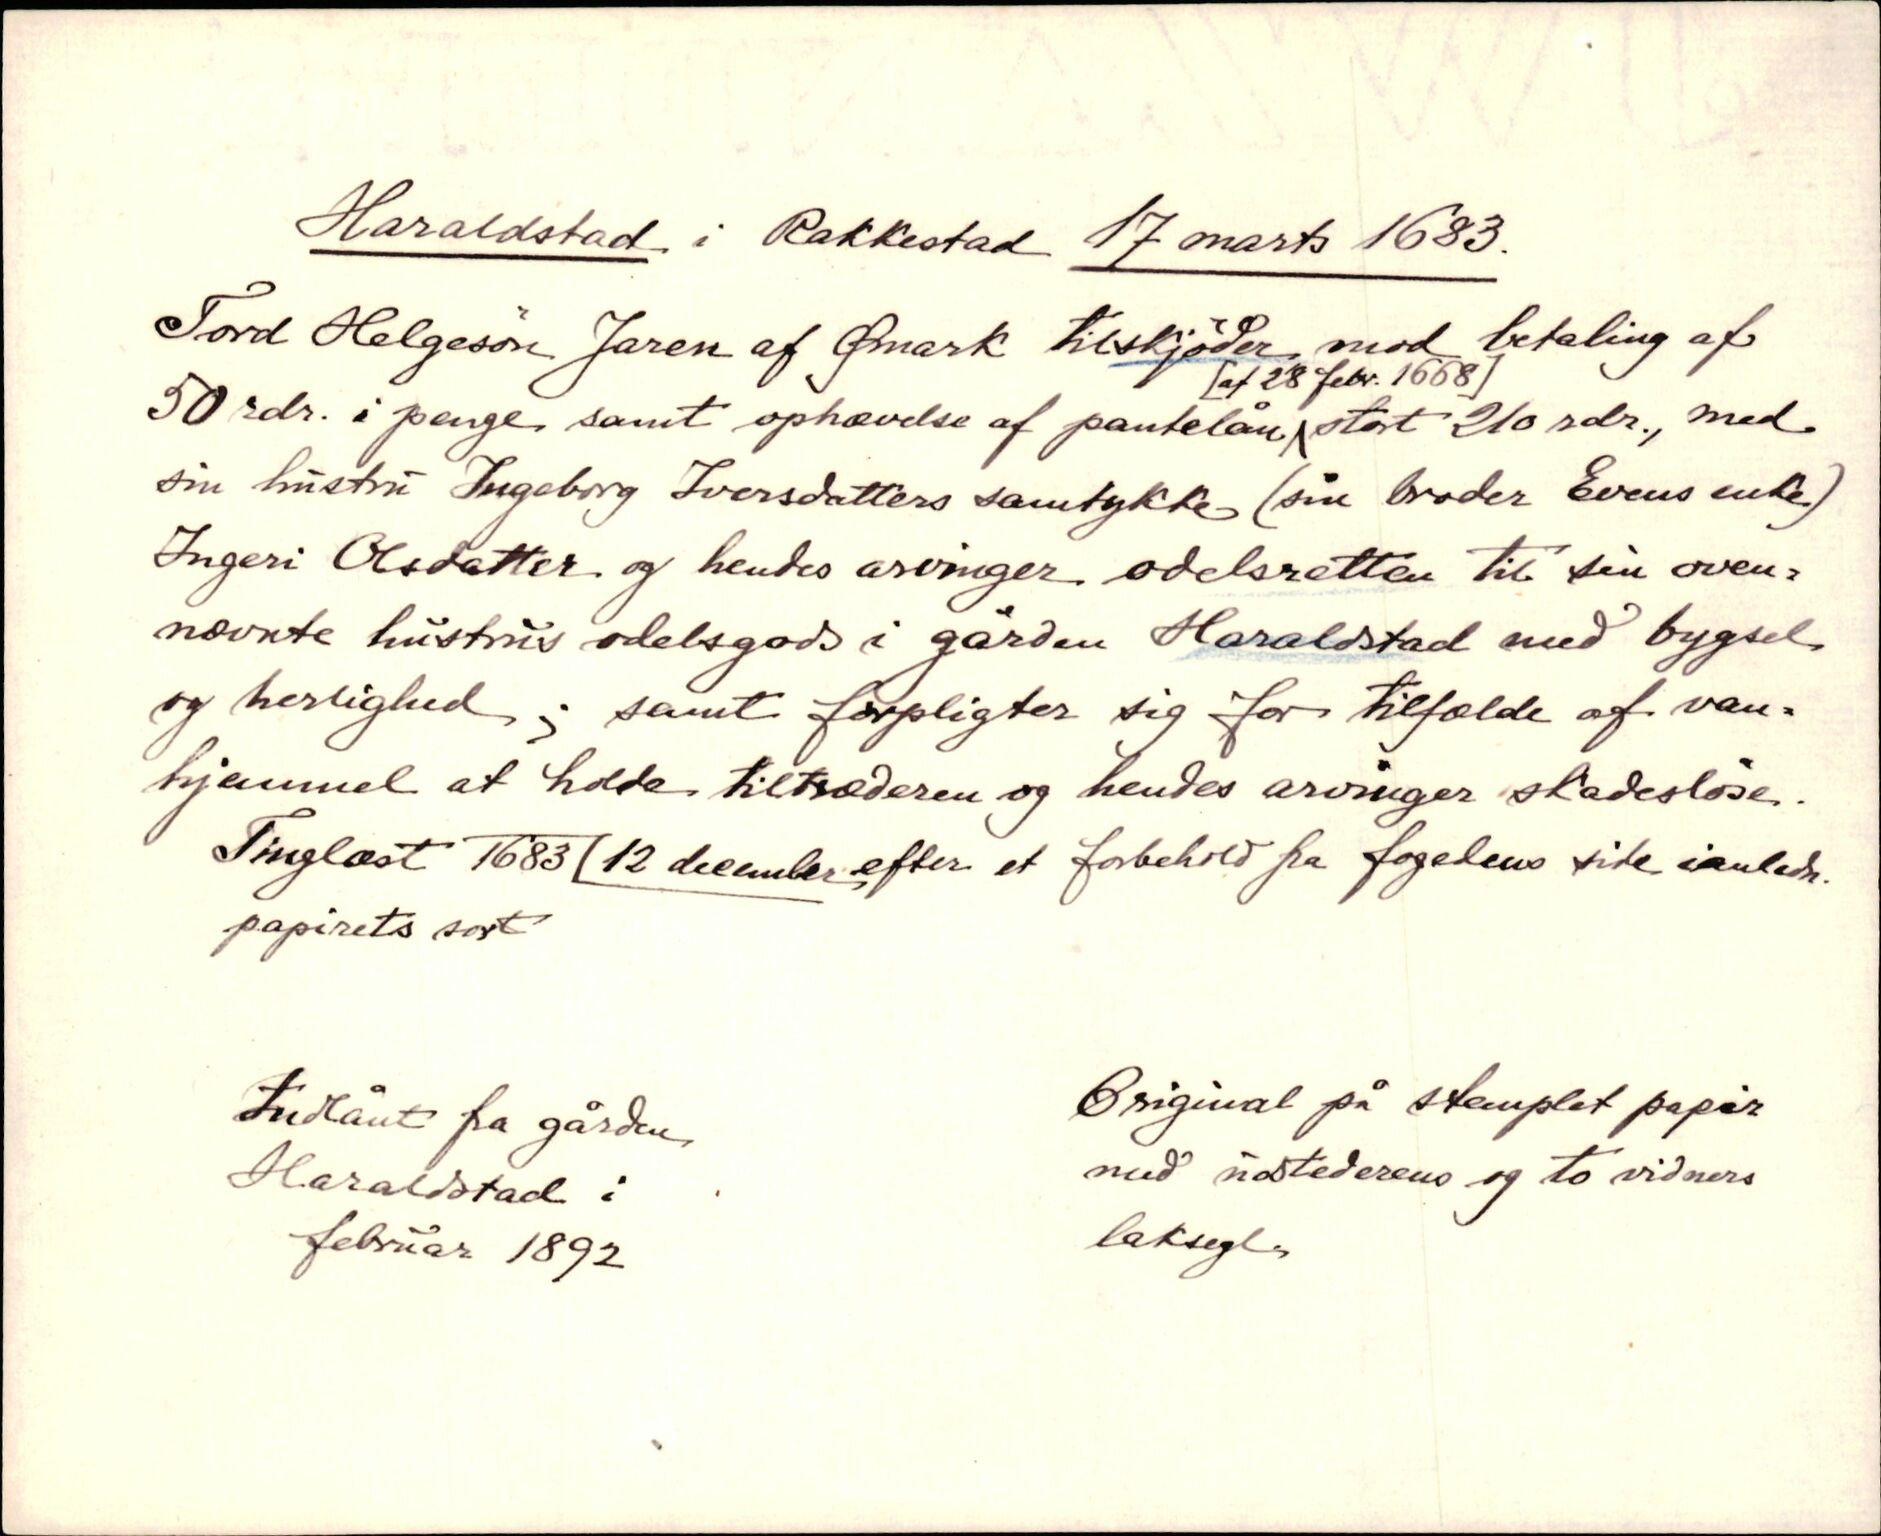 Haraldstad i Rakkestad 17 marts 1683.
Tord Helgesön Jaren af Ømark tilskjöder mod betaling af
[af 28 febr. 1668]
50 rdr. i penge samt ophævelse af pantelån, stort 210 rdr., med
sin hustru Ingeborg Iversdatters samtykke (sin broder Evens enke)
Ingeri Olsdatter og hendes arvinger odelsretten til sin oven-
nævnte hustrus odelsgods i gården Haraldstad med bygsel
og herlighed; samt forpligter sig for tilfælde af van-
hjemmel at holde tiltræderen og hendes arvinger skadesløse.
Tinglæst 1683 [12 december efter et forbehold fra fogedens side ianledn.
papirets sort
Indlånt fra gården
Haraldstad i
februar 1892
Original på stemplet papir
med udstederens og to vidners
laksegl.